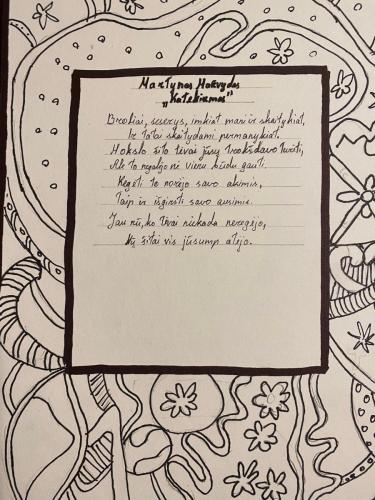 Martynas Mažvydas
„Katekizmas"
Broliai, seserys, imkiat mani ir skaitykiat,
Ir tatai skaitydami permanykiat.
Mokslo šito tėvai jūsų trokšdavo turėti,
Ale to negalėjo nė vienu būdu gauti.
Regėti to norėjo savo akimis,
Taip ir išgirsti savo ausimis.
Jau nū, ko tėvai niekada neregėjo,
Nū šitai vis jūsump atėjo.